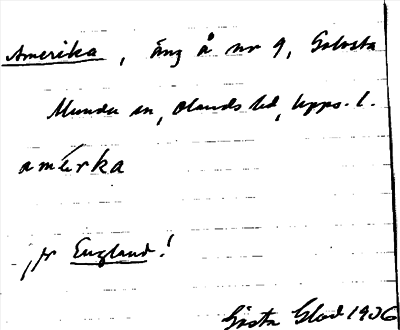 Amerika, äng å nr 9, Golvsta
Munda sn, Olands hd, Upps. l.
amérka
jfr England!
Gösta Glad 1906